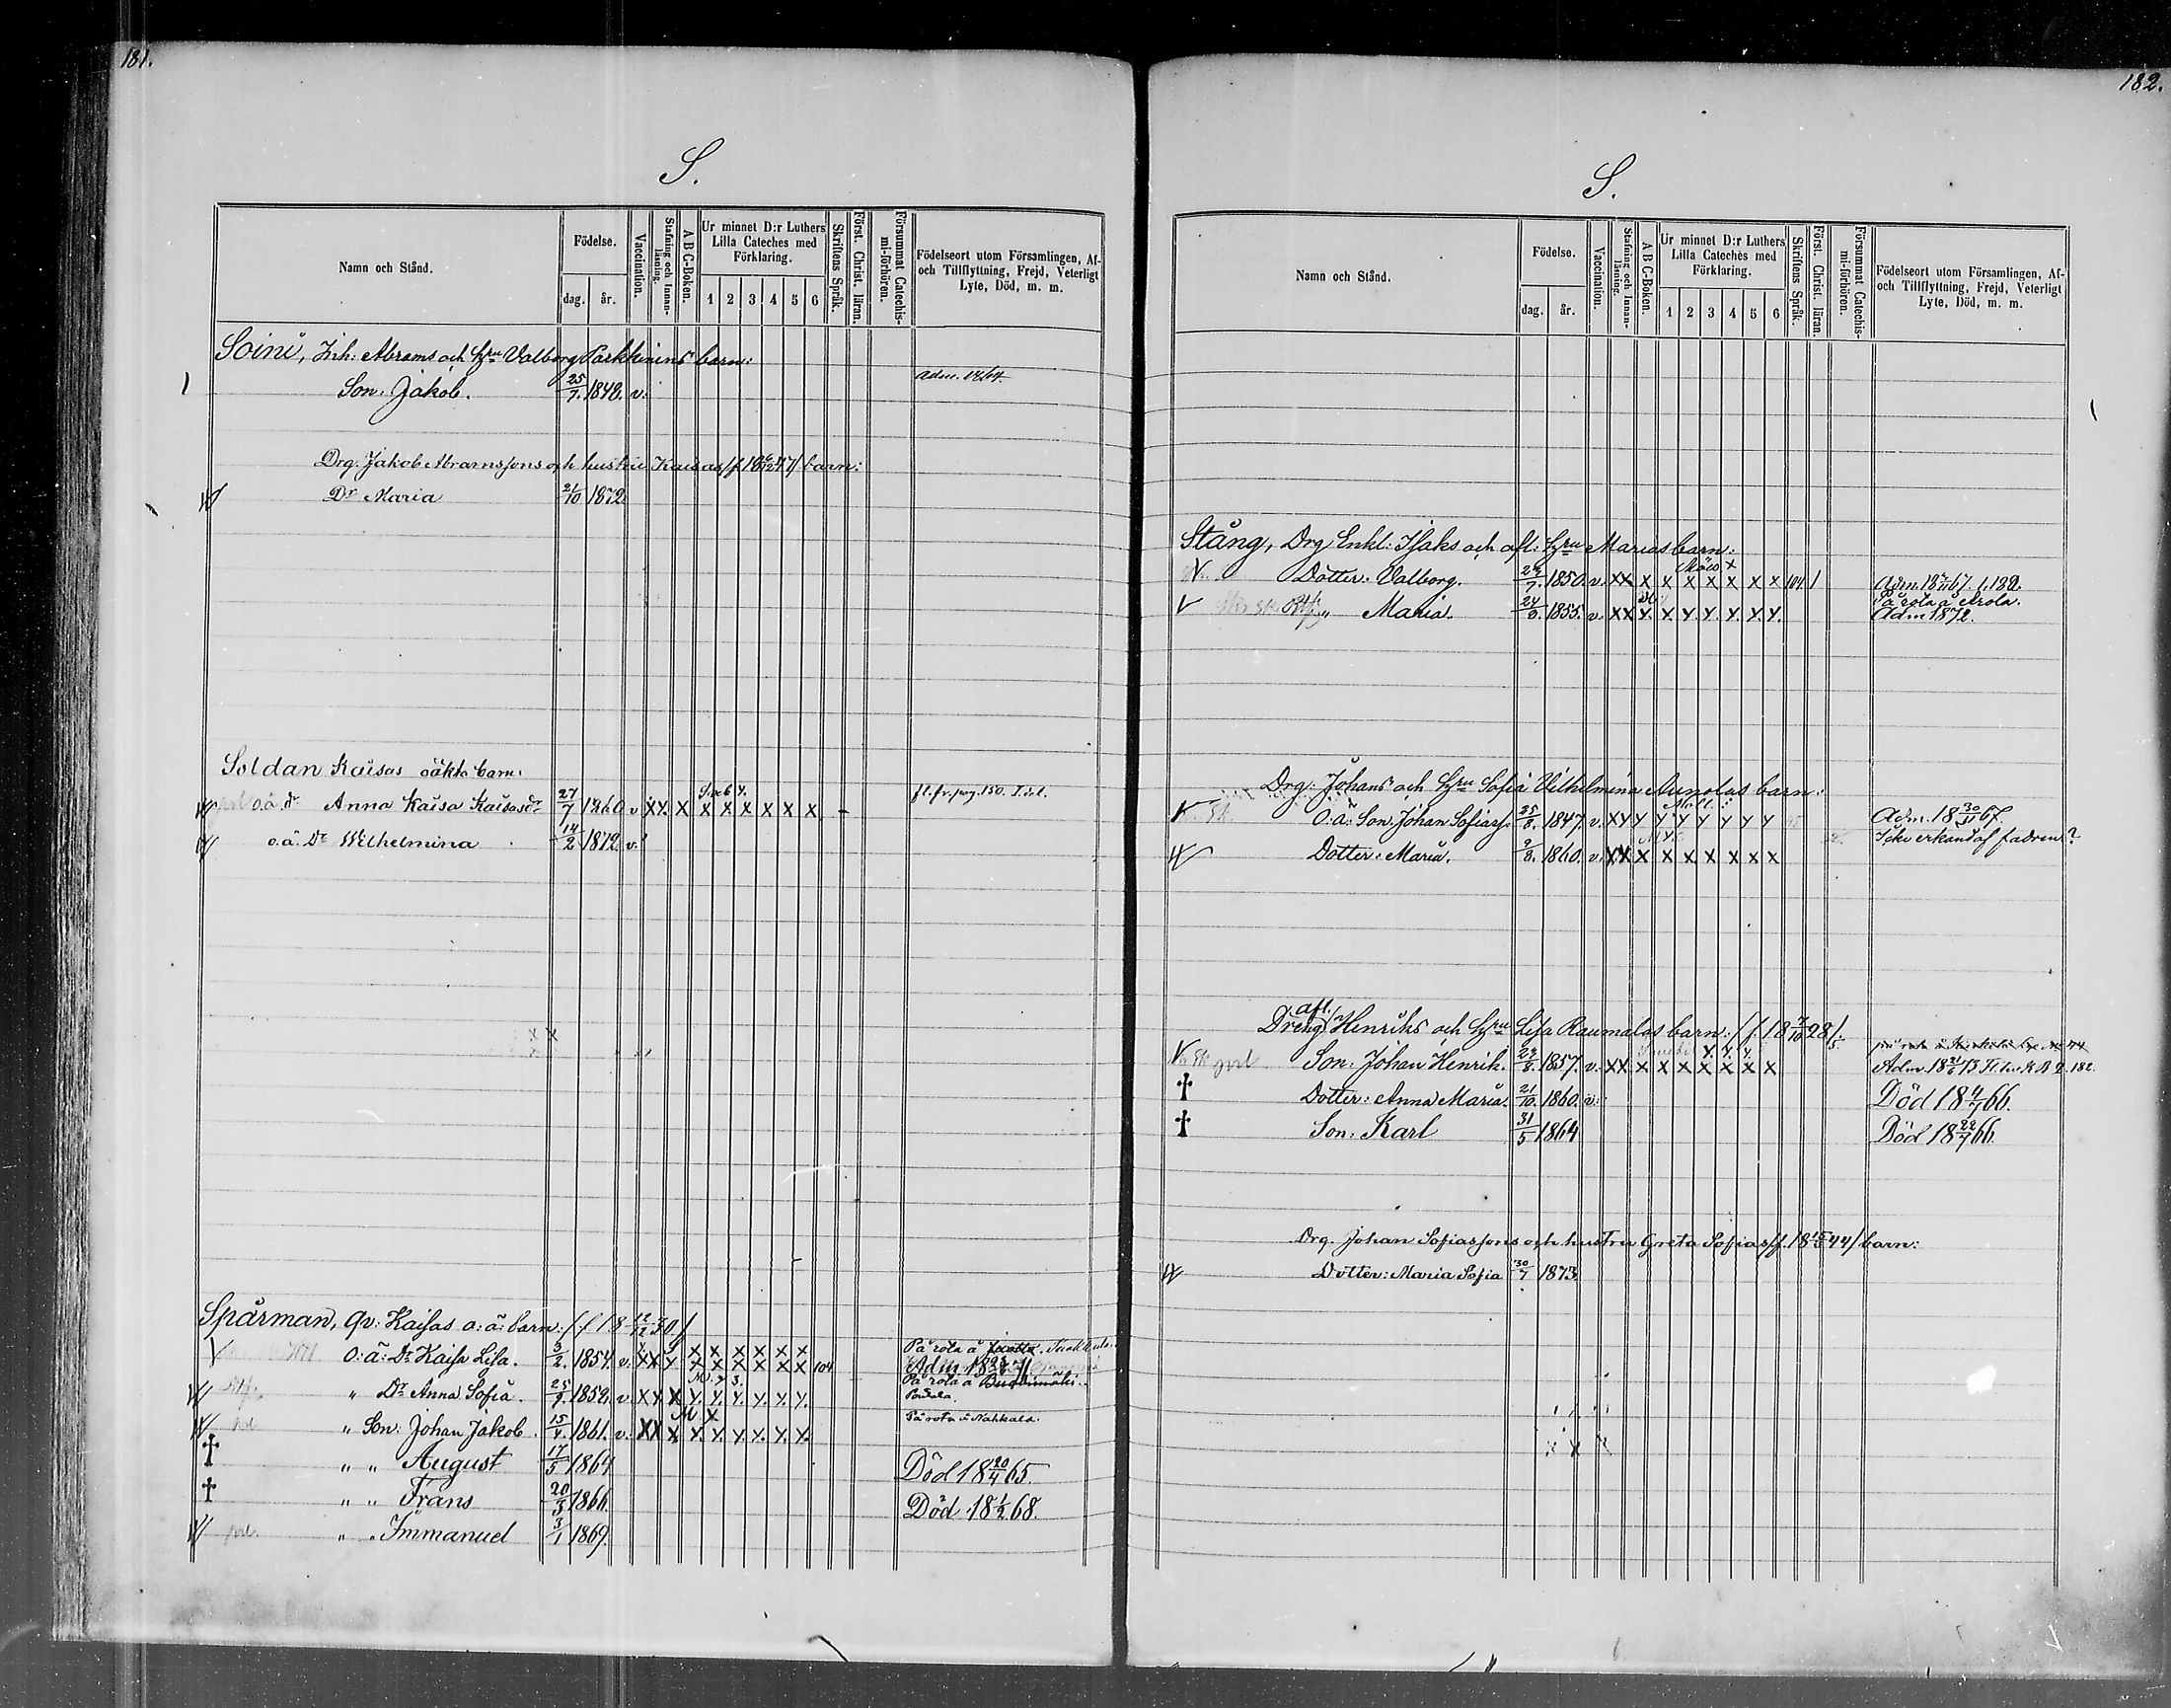 181.
S.
Namn och Stånd.
Födelse.
dag. år.
Vaccination.
Stafning och Innan-läsning.
A B C-Boken.
Ur minnet D:r Luthers Lilla Cateches med Förklaring.
1 2 3 4 5 6
Skriftens Språk.
Först. Christ. läran.
Försummat Catechis-mi-förhören.
Födelseort utom Församlingen, Af- och Tillflyttning, Frejd, Veterligt Lyte, Död, m. m.
Soini, Inh: Abrams och Hru Valborg Parkkinens barn:
Son. Jakob. 25/7. 1848. v. adm. 1864.
Drg. Jakob Abramssons och hustru Kaisas barn:
Dr Maria 21/10 1872
Soldan Kaisas oäkta barn:
o.ä. dr Anna Kaisa Kaisasdr 27/7 1860 v x x x x x x x x x fl. fr. pag. 150. I. d.
o.ä. Dr Wilhelmina 14/2 1872. v.
Spårman, Qv: Kaisas o: ä: barn: /f 18 12/12 30/
O: ä: Dr Kaisa Lisa. 3/2. 1854. v. x x x x x x x x x 104 På rota å
Adm 18 71
" Dr Anna Sofia. 25/9. 1859. v x x x y. y. y. y. y. y. På rota å
" Son: Johan Jakob. 15/4. 1861. v. x x x x. y. y. y. y. x. På rota å Nahkala.
" " August 17/5 1864 Död 18 20/4 65.
" " Frans 20/3 1866. Död 18 1/2 68.
" " Immanuel 3/1 1869.
182.
S.
Namn och Stånd.
Födelse.
dag. år.
Vaccination.
Stafning och Innan-läsning.
A B C-Boken.
Ur minnet D:r Luthers Lilla Cateches med Förklaring.
1 2 3 4 5 6
Skriftens Språk.
Först. Christ. läran.
Försummat Catechis-mi-förhören.
Födelseort utom Församlingen, Af- och Tillflyttning, Frejd, Veterligt Lyte, Död, m. m.
Stång, Drg Enkl: Isaks och afl: Hru Marias barn:
Dotter: Valborg. 1850. v. x x x x x x x x x 104 1 Adm. 18 67. 1.132.
På rota å Arola.
" Maria. 24/8. 1855. v. x x y. x y. y. y. y. y. Adm 1872.
Drg: Johans och Hru Sofia Vilhelmina Aunolas barn:
O: ä: Son. Johan Sofiass. 25/8. 1847. v. x y y y y y y y y Adm. 18 30/11 67.
Icke erkänd af fadren?
Dotter: Maria. 9/8. 1860. v. x x x x x x x x x
afl.
Dreng: Henriks och Hru Lisa Raumalas barn: /f. 18 7/10 28/.
Son. Johan Henrik. 1857. v. x x x x x x x x x Adm. 18 73 182.
Dotter: Anna Maria. 21/10. 1860. v. Död 18 4/7 66.
Son. Karl 31/5 1864 Död 18 22/7 66.
Drg. Johan Sofiassons och hustru Greta Sofias /f. 18 44/ barn:
Dotter: Maria Sofia 30/7 1873